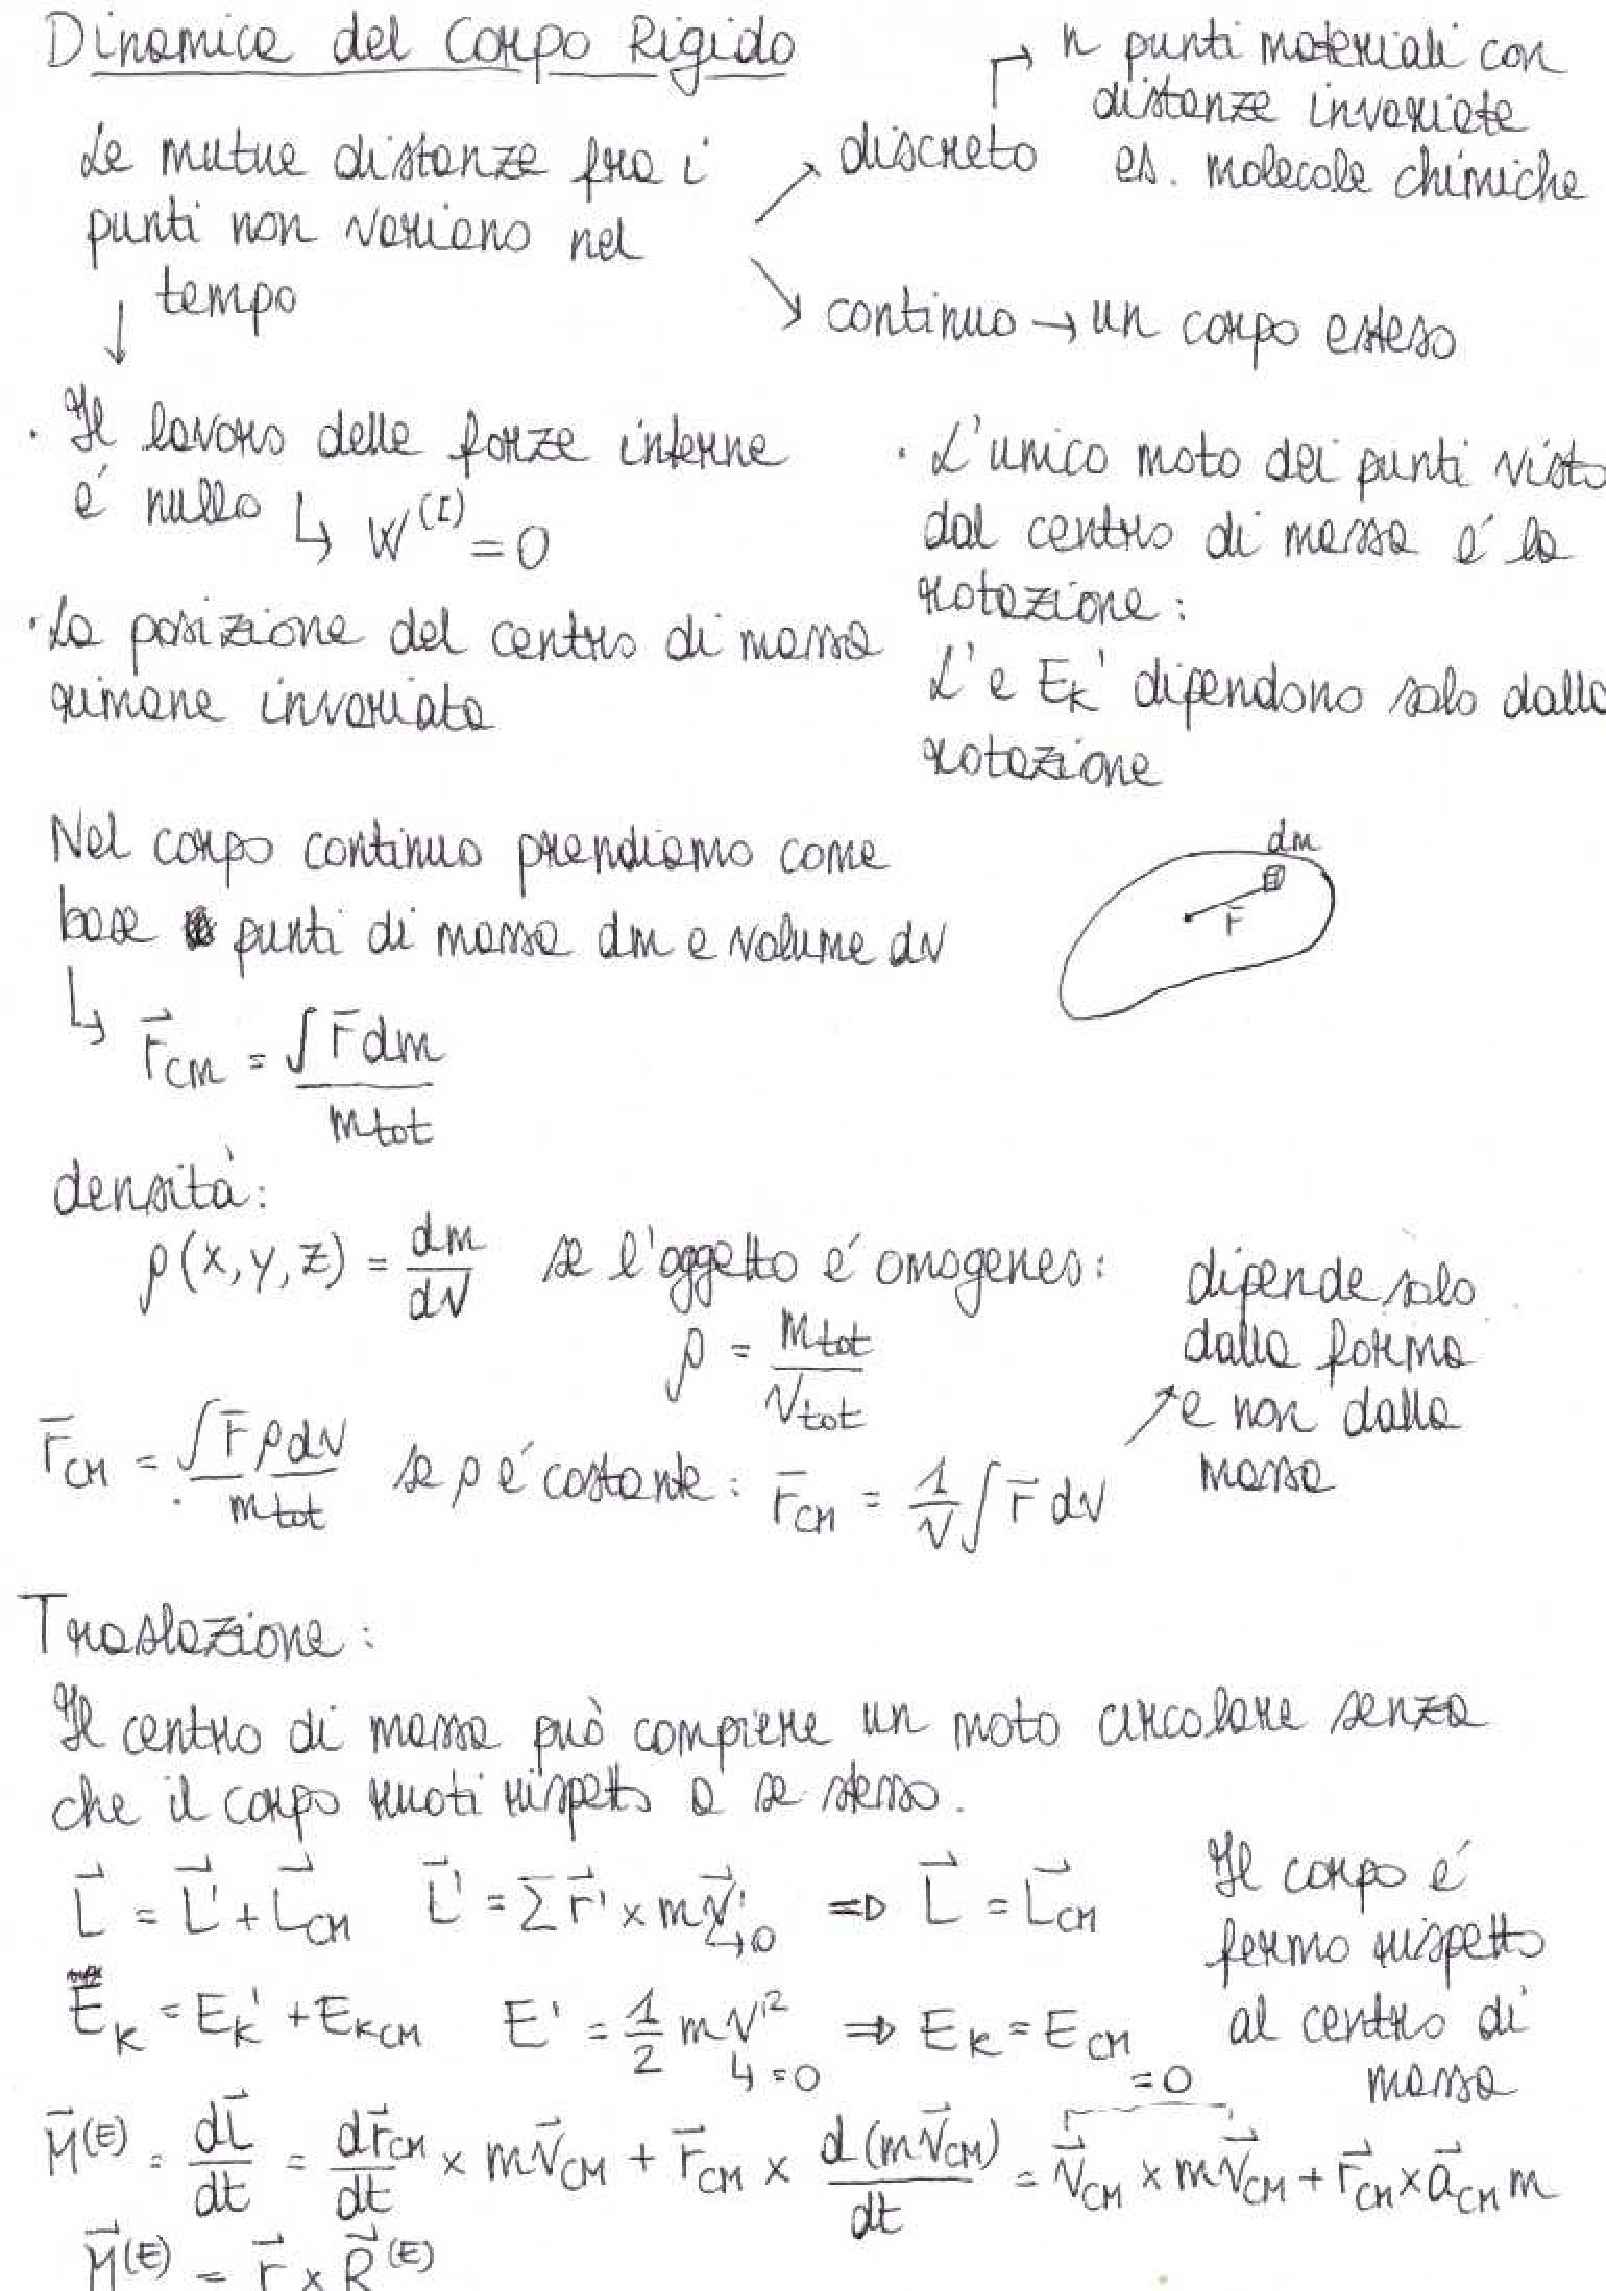 Dinamica del Corpo Rigido
Le mutue distanze fra i
punti non variano nel
tempo
discreto → n punti materiali con
distanze invariate
es. molecole chimiche
continuo → un corpo esteso
· Il lavoro delle forze interne
é nullo ↳ W^(I) = 0
· La posizione del centro di massa
rimane invariata
· L'unico moto dei punti visto
dal centro di massa é la
rotazione:
L' e E_K' dipendono solo dalla
rotazione
Nel corpo continuo prendiamo come
base punti di massa dm e volume dV
dm
r̄
↳ r⃗_CM = ∫ r̄ dm / m_tot
densità:
ρ(x,y,z) = dm/dV se l'oggetto é omogeneo:
ρ = m_tot / V_tot
r̄_CM = ∫ r̄ ρ dV / m_tot se ρ é costante: r̄_CM = 1/V ∫ r̄ dV
dipende solo
dalla forma
e non dalla
massa
Traslazione:
Il centro di massa può compiere un moto circolare senza
che il corpo ruoti rispetto a se stesso.
L⃗ = L⃗' + L⃗_CM L⃗' = Σ r⃗' × m v⃗' ↳0 ⇒ L⃗ = L⃗_CM
E_K = E_K' + E_KCM E' = 1/2 m v'² ↳=0 ⇒ E_K = E_CM
Il corpo é
fermo rispetto
al centro di
massa
M⃗^(E) = dL⃗/dt = dr⃗_CM/dt × m v⃗_CM + r⃗_CM × d(m v⃗_CM)/dt = v⃗_CM × m v⃗_CM + r⃗_CM × a⃗_CM m
=0
M⃗^(E) = r⃗ × R⃗^(E)